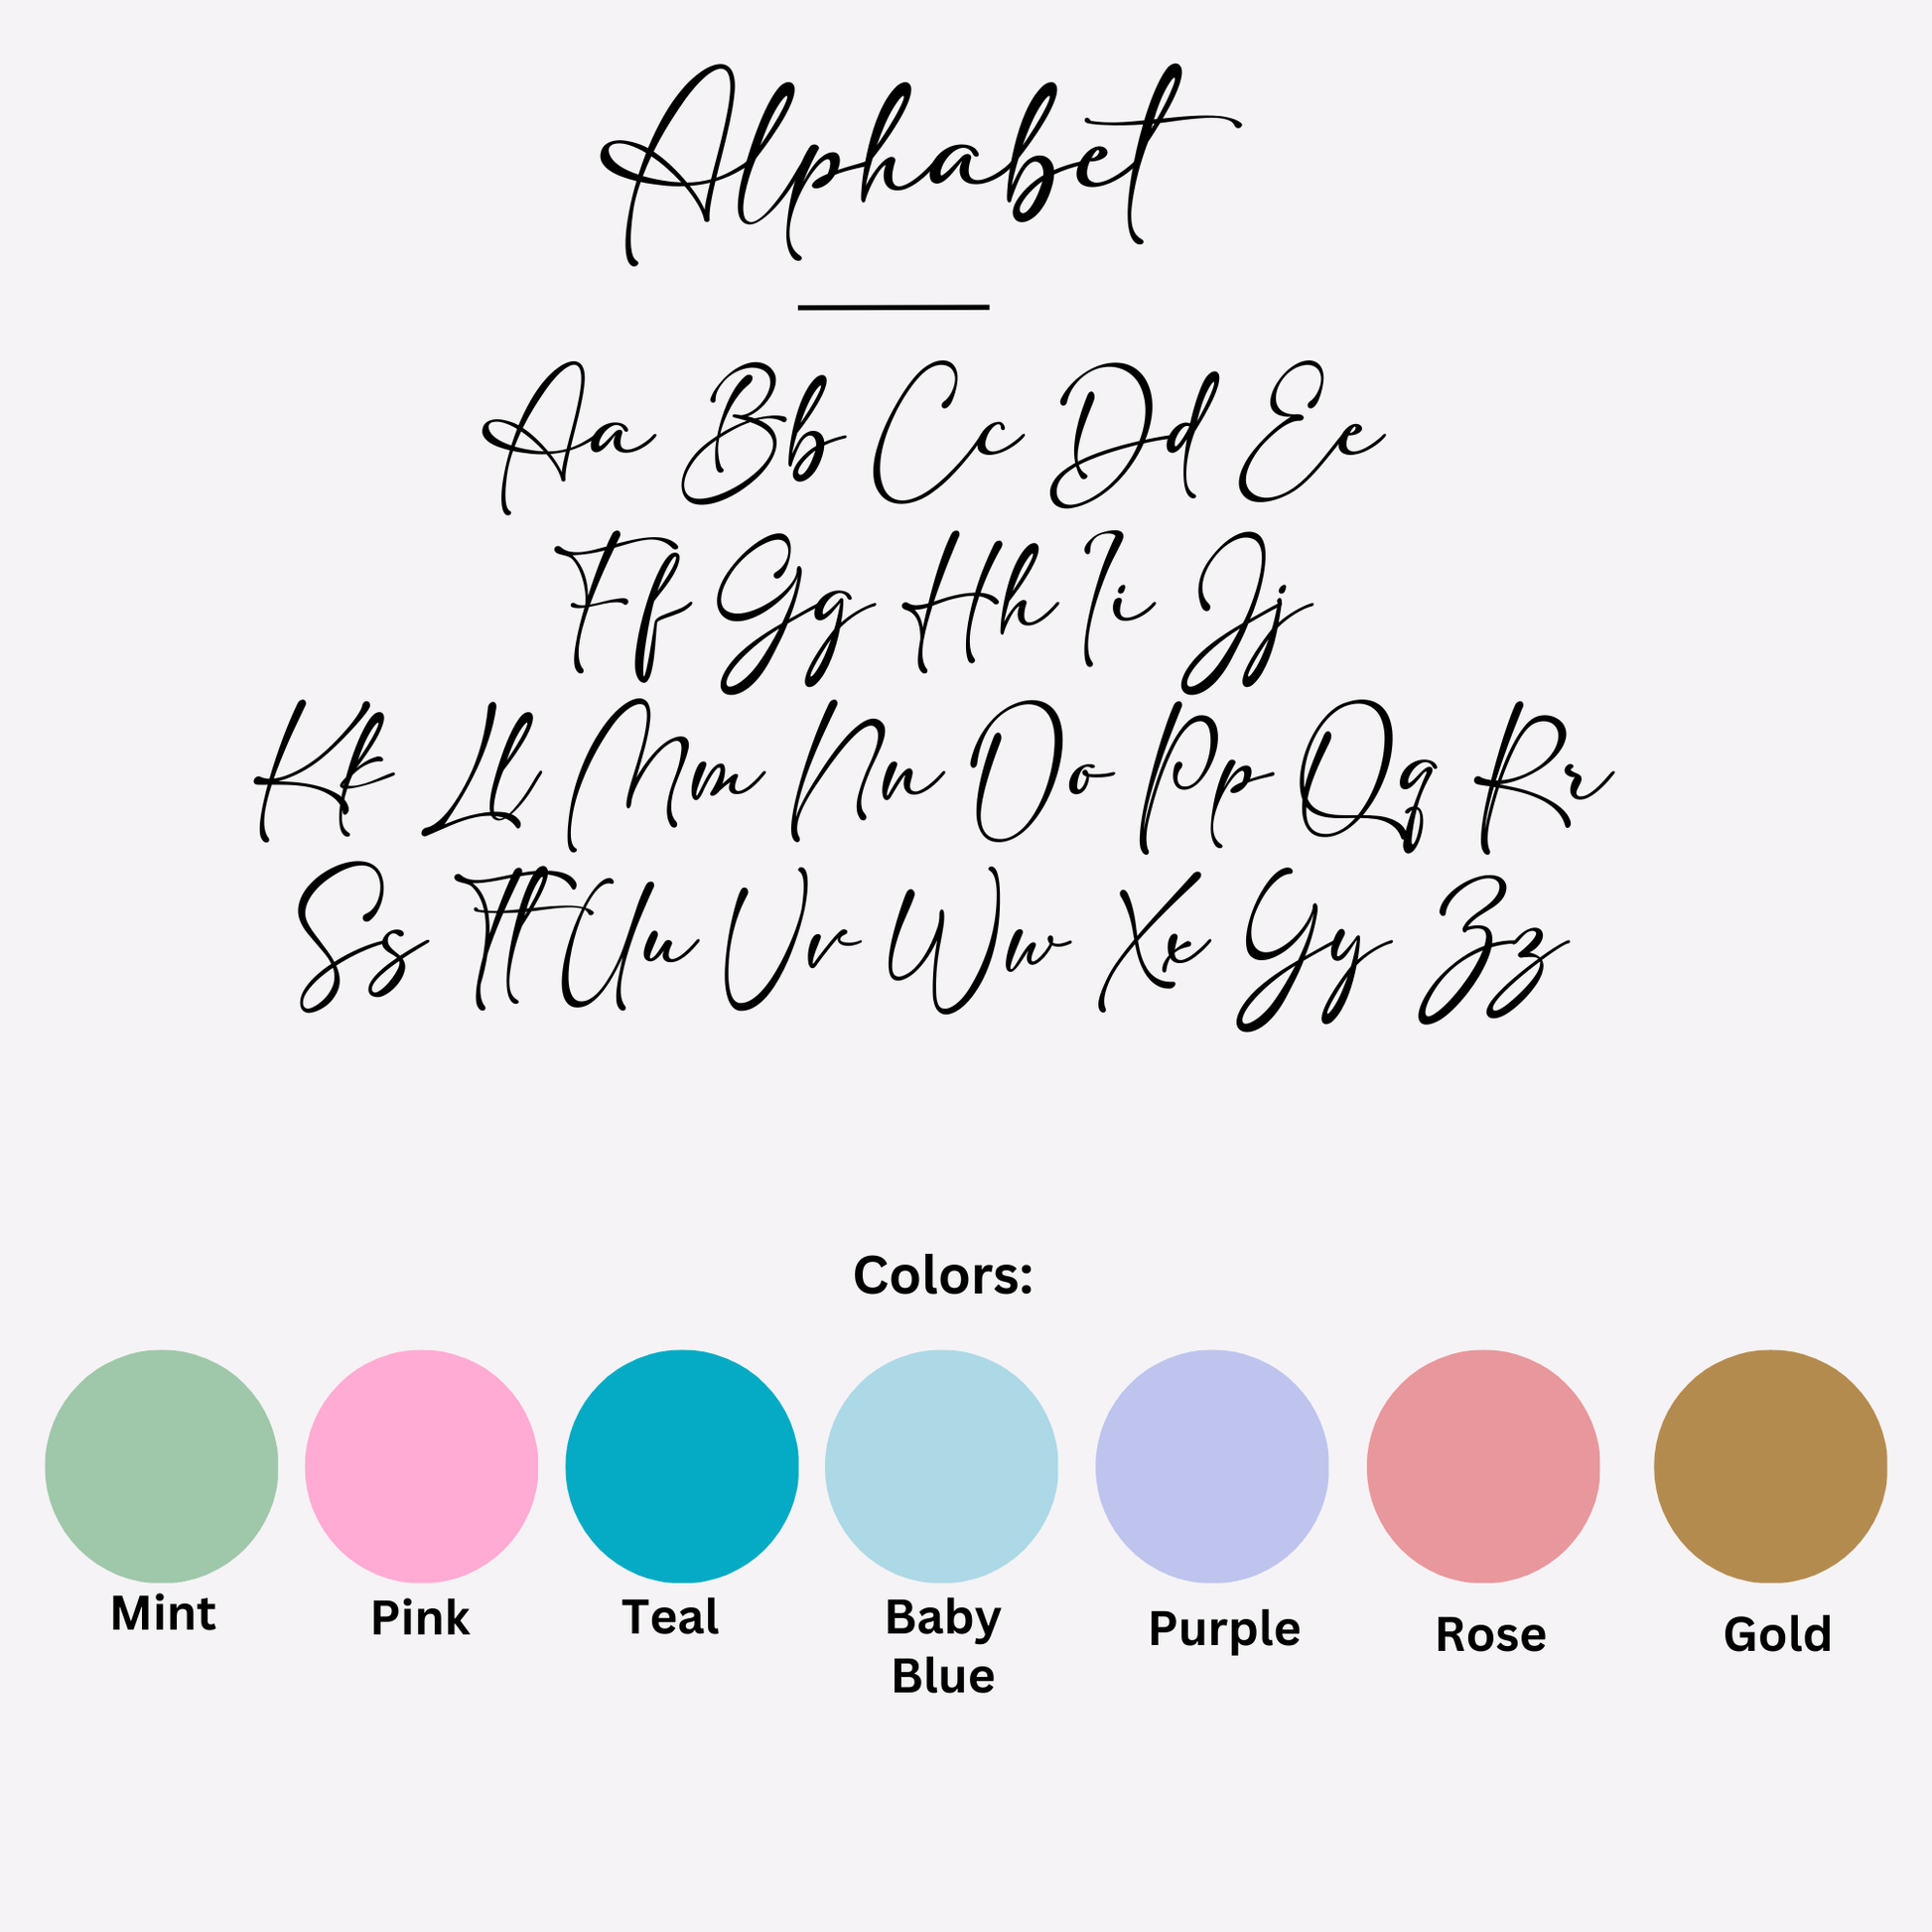 Alphabet
Aa Bb Cc Dd Ee
Ff Gg Hh Ii Jj
Kk Ll Mm Nn Oo Pp Qq Rr
Ss Tt Uu Vv Ww Xx Yy Zz
Colors:
Mint Pink Teal Baby Blue Purple Rose Gold